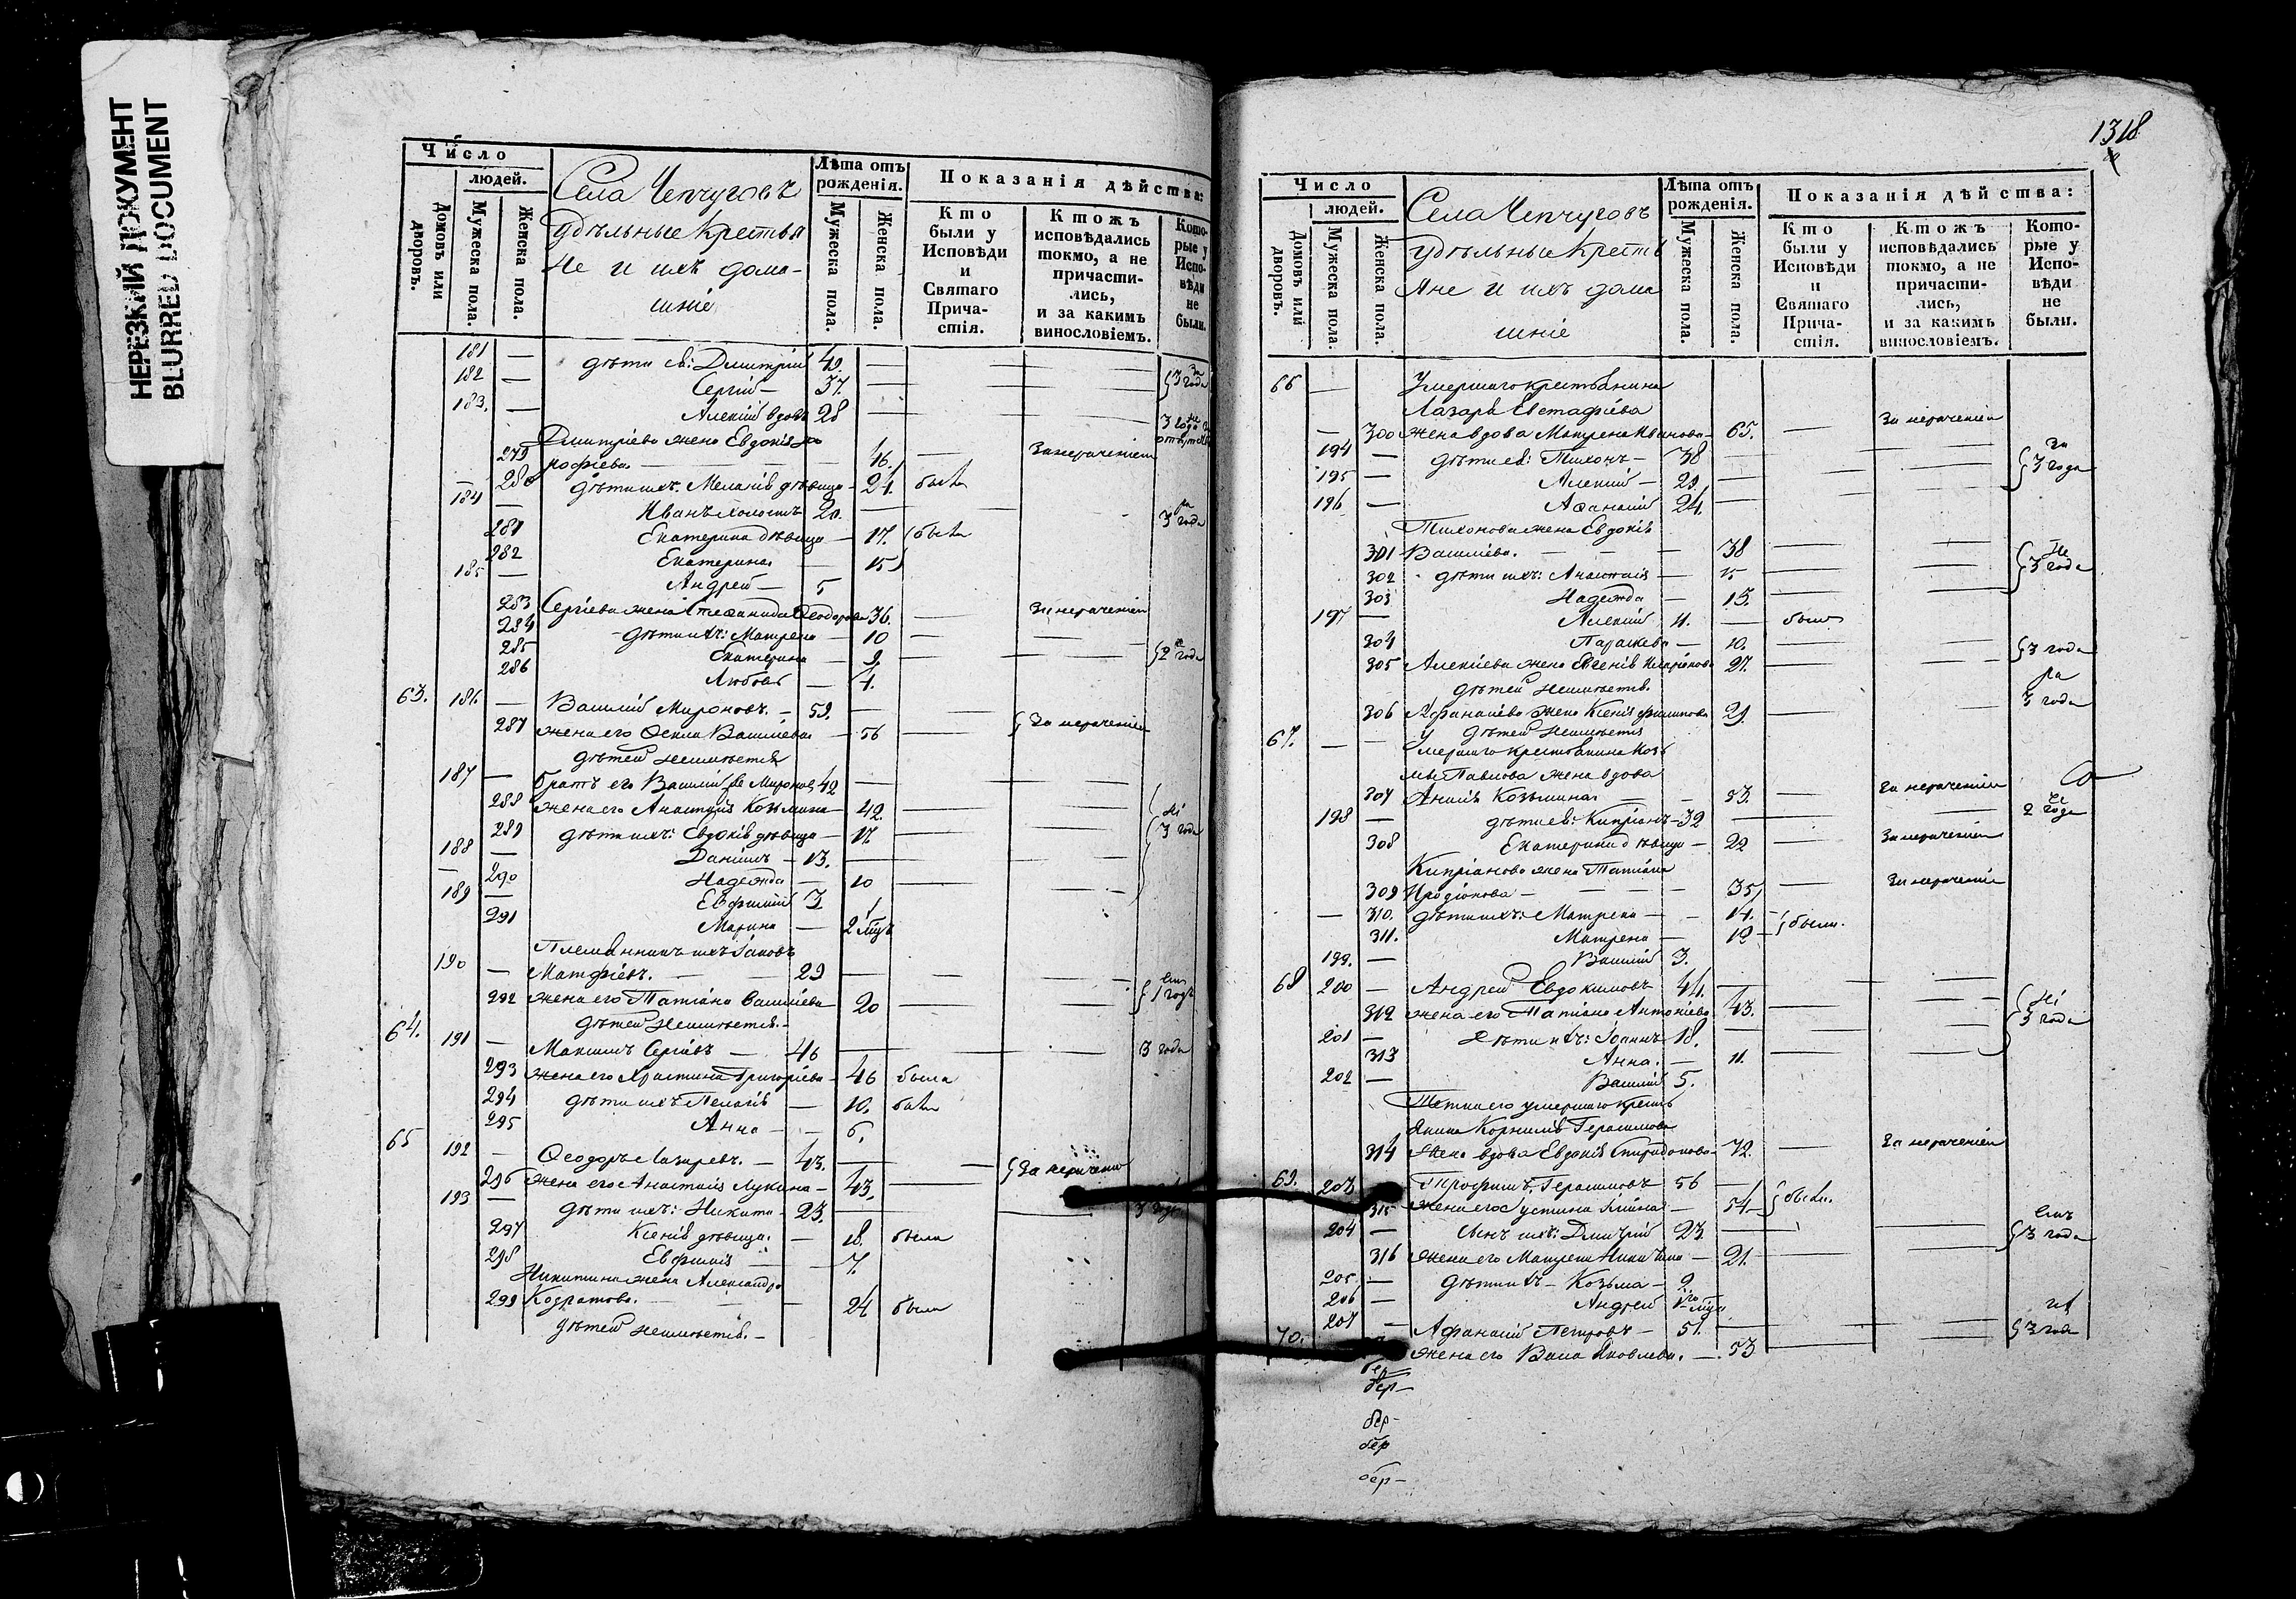 НЕРЕЗКИЙ ДОКУМЕНТ
BLURRED DOCUMENT
Число
людей.
Домовъ или дворовъ.
Мужеска пола.
Женска пола.
Села Чепчуговъ
удѣльные Крестья
не и ихъ дома-
шніе
Лѣта отъ рожденія.
Мужеска пола.
Женска пола.
Показанія дѣйства:
Кто были у Исповѣди и Святаго Причастія.
Ктожъ исповѣдались токмо, а не причастились, и за какимъ винословіемъ.
Которые у Исповѣди не были.
181 — дѣти ея: Дмитрій 49. —
182 — Сергій — 37. — 3 года
183. — Алексій вдовъ 28 —
Дмитріева жена Евдокія
279 рофіева — 46. За нераченіем
280 дѣти ихъ: Меланія дѣвица — 21. была
184 — Иванъ холостъ 20. — 3 года
281 Екатерина дѣвица — 17. были
282 Екатерина — 15
185 — Андрей — 5
283 Сергіева жена Стефанида Ѳеодорова 36. — За нераченіем
284 дѣти ихъ: Матрена — 10 —
285 Екатерина — 9. — 2 года
286 Любовь — 4.
63. 186. — Василій Мироновъ. — 59. —
287 жена его Ѳекла Васильева — 56 — За нераченіем
дѣтей неимѣется
187 — братъ его Василій же Мироновъ 42 —
288 жена его Анастасія Козьмина — 42. —
289 дѣти ихъ: Евдокія дѣвица — 17. — 3 года
188 — Даніилъ — 13. —
290 Надежда — 10 —
189 — Евфимій 3
291 Марина — 2 мцъ
Племянникъ ихъ Іаковъ
190 — Матфіевъ. — 29 —
292 жена его Татіана Васильева 20 — 1 годъ
дѣтей неимѣется. —
64. 191 — Максимъ Сергіевъ — 46 — 3 года
293 жена его Христина Григоріева — 46 была
294 дѣти ихъ Пелагія — 10. была
295 Анна — 6.
65 192 — Ѳеодоръ Лазаревъ. — 43. —
296 жена его Анастасія Лукина — 43. — За нераченіем
193 — дѣти ихъ: Никита — 23. — 3 года
297 Ксенія дѣвица. — 18. была
298 Евфимія — 7.
Никитина жена Александра
299 Кодратова. — 24 была
дѣтей неимѣется. —
1318
Число
людей.
Домовъ или дворовъ.
Мужеска пола.
Женска пола.
Села Чепчуговъ
удѣльные Кресть
яне и ихъ дома
шніе
Лѣта отъ рожденія.
Мужеска пола.
Женска пола.
Показанія дѣйства:
Кто были у Исповѣди и Святаго Причастія.
Ктожъ исповѣдались токмо, а не причастились, и за какимъ винословіемъ.
Которые у Исповѣди не были.
66 — Умершаго крестьянина
Лазаря Евстафіева
— 300 жена вдова Матрена Иванова — 65. — За нераченіем
194 — дѣти ея: Тихонъ — 38 — За
195 — Алексій — 29. — 3 года
196 — Аѳанасій 24. —
Тихонова жена Евдокія
301 Васильева. — 38 —
302 дѣти ихъ: Анастасія — 15 — 3 года
303 Надежда — 13. —
197 — Алексій 11. — былъ
304 Параскева — 10. —
305 Алексіева жена Евгенія Иларіонова 27. — 3 года
дѣтей неимѣется.
306 Афанасіева жена Ксенія Филипова 21. — 3 года
дѣтей неимѣется
67. — Умершаго крестьянина Козь
мы Павлова жена вдова
307 Анисія Козьмина. — 53. — За нераченіем
198 — дѣти ея: Кипріанъ — 32 — 2 года
308 Екатерина дѣвица — 22 — За нераченіем
Кипріанова жена Татіана
309 Иродіонова — 35 — За нераченіем
— 310. дѣти ихъ: Матрена — 14. были.
311. Матрена — 12
199. — Василій 3.
68 200 — Андрей Евдокимовъ 44. —
312 жена его Татіана Антоніева 43. — 3 года
201 — Дѣти ихъ: Іоаннъ 18. —
313 Анна. — 11. —
202 — Василій 5.
Тетка его умершаго кресть
янина Корнилія Герасимова
314 жена вдова Евдокія Спиридонова 72. — За нераченіем
69. 203 Трофимъ Герасимовъ 56 —
315 жена его Іустина — 54 — были.
204 — Сынъ ихъ: Дмитрій 23. —
316 жена его Матрена Никитина — 21. — 3 года
205 — дѣти ихъ — Козьма — 2.
206 — Андрей мцъ
70. 207 — Афанасій Петровъ — 51. —
жена его Васса Яковлева. — 53 3 года
бер —
бер —
бер
бер —